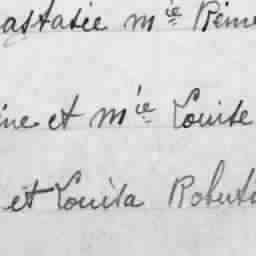 astasie mie Reine
ine et mie Louise
et Louisa Robuta